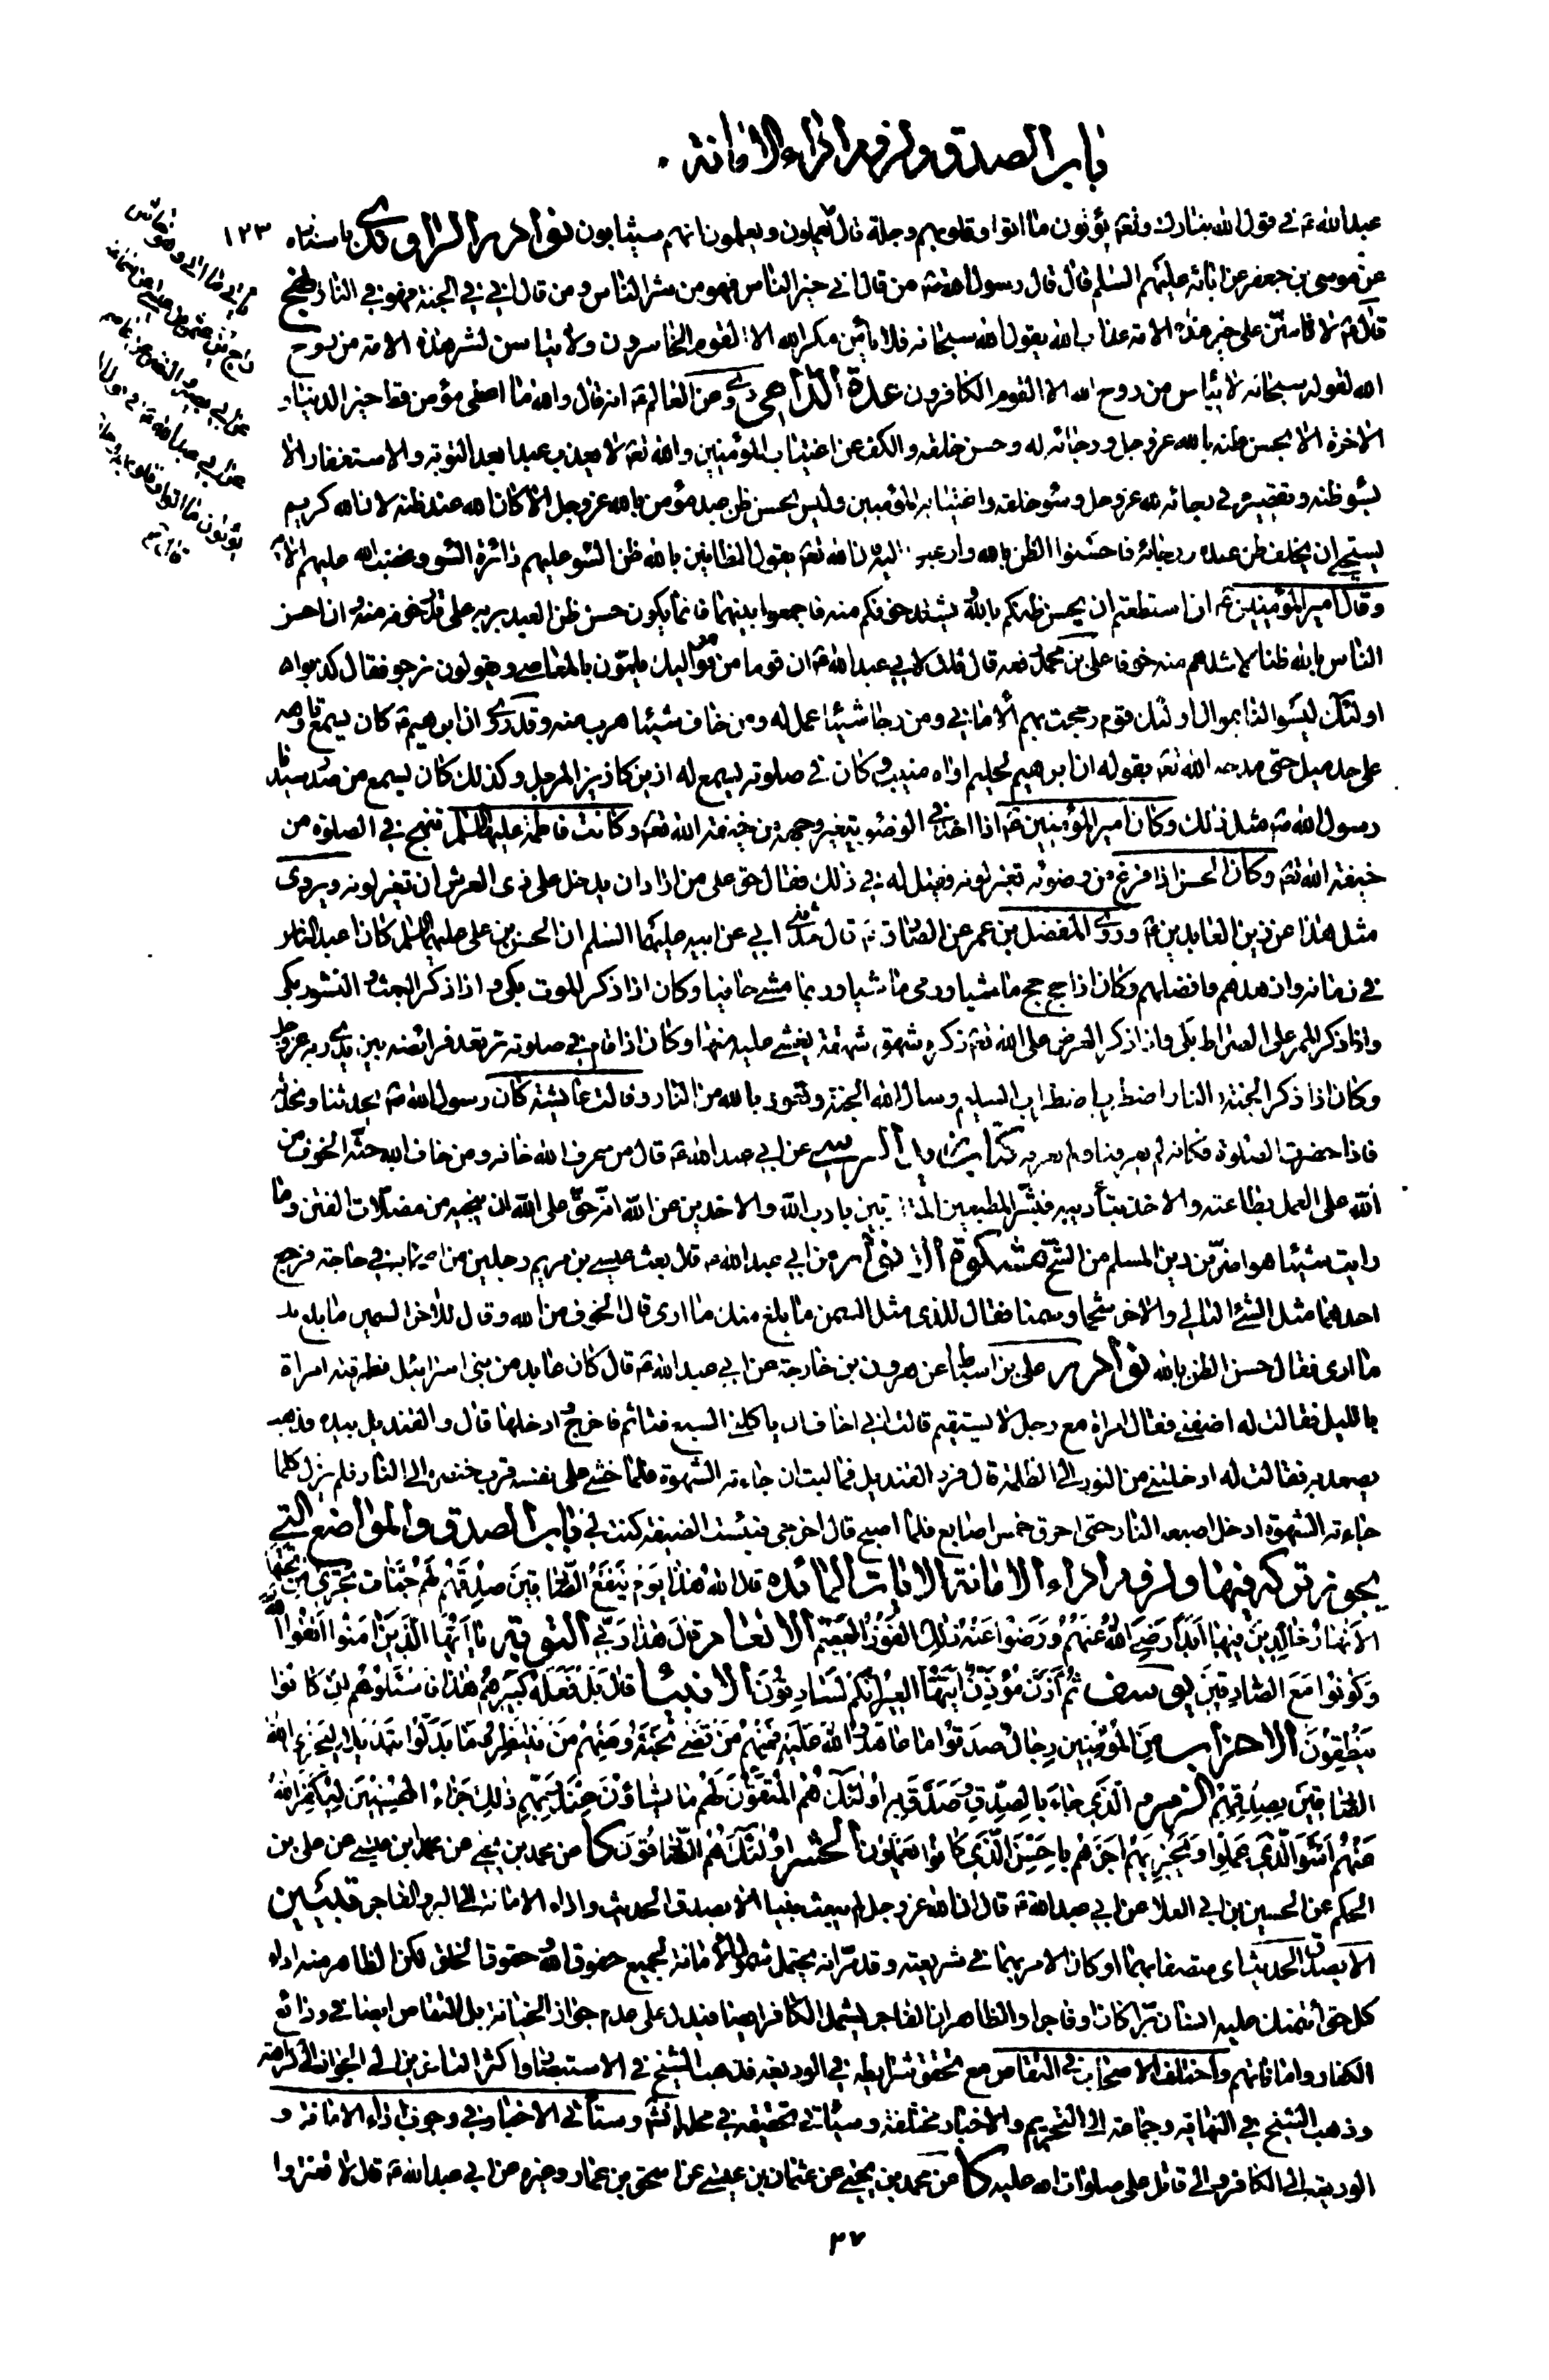 باب الصدق ولزوم اداء الامانة
١٢٣
عبد الله ع في قول الله تبارك وتع يؤتون ما اتوا وقلوبهم وجلة قال يعملون ويعلمون انهم سيثابون نوادر الراوندي باسناده
عن موسى بن جعفر عن ابائه عليهم السلم قال قال رسول الله ص من قال اني خير الناس فهو من شر الناس ومن قال اني في الجنة فهو في النار نهج
قال ع لا تامنن على خير هذه الامة عذاب الله يقول الله سبحانه فلا يأمن مكر الله الا القوم الخاسرون ولا تياسن لشر هذه الامة من روح
الله لقوله سبحانه لا ييأس من روح الله الا القوم الكافرون عدة الداعي روي عن العالم ع انه قال والله ما اعطي مؤمن قط خير الدنيا و
الاخرة الا بحسن ظنه بالله عز وجل ورجائه له وحسن خلقه والكف عن اغتياب المؤمنين والله تع لا يعذب عبدا بعد التوبة والاستغفار الا
بسوء ظنه وتقصيره في رجائه لله عز وجل وسوء خلقه واغتيابه المؤمنين وليس يحسن ظن عبد مؤمن بالله عز وجل الا كان الله عند ظنه لان الله كريم
يستحيي ان يخلف ظن عبده ورجائه فاحسنوا الظن بالله وارغبوا اليه فان الله تع يقول الظانين بالله ظن السوء عليهم دائرة السوء وغضب الله عليهم الاية
وقال امير المؤمنين ع ان استطعتم ان يحسن ظنكم بالله ويشتد خوفكم منه فاجمعوا بينهما فانما يكون حسن ظن العبد بربه على قدر خوفه منه وان احسن
الناس بالله ظنا لاشدهم منه خوفا علي بن محمد رفعه قال قلت لابي عبد الله ع ان قوما من مواليك يلمون بالمعاصي ويقولون نرجو فقال كذبوا
اولئك ليسوا لنا بموال اولئك قوم رجحت بهم الاماني ومن رجا شيئا عمل له ومن خاف شيئا هرب منه وقد روي ان ابراهيم ع كان يسمع تاوهه
على حد ميل حتى مدحه الله تع بقوله ان ابراهيم لحليم اواه منيب وكان في صلوته يسمع له ازيز كازيز المرجل وكذلك كان يسمع من صدر سيدنا
رسول الله ص مثل ذلك وكان امير المؤمنين ع اذا اخذ في الوضوء يتغير وجهه من خيفة الله تع وكانت فاطمة عليها السلم تنهج في الصلوة من
خيفة الله تع وكان الحسن اذا فرغ من وضوئه تغير لونه فقيل له في ذلك فقال حق على من اراد ان يدخل على ذي العرش ان تغير لونه ويروى
مثل هذا عن زين العابدين ع وروى المفضل بن عمر عن الصادق ع قال حدثني ابي عن ابيه عليهما السلم ان الحسن بن علي عليهما السلم كان اعبد الناس
في زمانه وازهدهم وافضلهم وكان اذا حج حج ماشيا ورمى ماشيا وربما مشى حافيا وكان اذا ذكر الموت بكى واذا ذكر البعث والنشور بكى
واذا ذكر الممر على الصراط بكى واذا ذكر العرض على الله تع ذكره شهق شهقة يغشى عليه منها وكان اذا قام في صلوته ترتعد فرائصه بين يدي ربه عز وجل
وكان اذا ذكر الجنة والنار اضطرب اضطراب السليم وسال الله الجنة وتعوذ بالله من النار وقالت عائشة كان رسول الله ص يحدثنا ونحدثه
فاذا حضرت الصلوة فكانه لم يعرفنا ولم نعرفه عن ابي عبد الله ع قال من عرف الله خافه ومن خاف الله حثه الخوف من
الله على العمل بطاعته والاخذ بتأديبه فبشر المطيعين المتأدبين بادب الله والاخذين عن الله انه حق على الله ان ينجيه من مضلات الفتن وما
رايت شيئا هو اضر من دين المسلم من الشح مشكوة الانوار عن ابي عبد الله ع قال بعث عيسى بن مريم رجلين من اصحابه في حاجة فرجع
احدهما مثل الشن البالي والاخر شحما وسمنا فقال للذي مثل الشن ما بلغ منك ما ارى قال الخوف من الله وقال للاخر السمين ما بلغ بك
ما ارى فقال حسن الظن بالله نوادر علي بن اسباط عن هرون بن خارجة عن ابي عبد الله ع قال كان عابد من بني اسرائيل فطرقته امراة
بالليل فقالت له اضفني فقال امراة مع رجل لا يستقيم قالت اني اخاف ان ياكلني السبع فتاثم فخرج وادخلها قال والقنديل بيده فذهب
يصعد به فقالت له ادخلتني من النور الى الظلمة قال فرد القنديل فما لبث ان جاءته الشهوة فلما خشي على نفسه قرب خنصره الى النار فلم يزل كلما
جاءته الشهوة ادخل اصبعه النار حتى احرق خمس اصابع فلما اصبح قال اخرجي فبئست الضيفة كنت لي باب الصدق والمواضع التي
يجوز تركه فيها ولزوم اداء الامانة الايات المائده قال الله هذا يوم ينفع الصادقين صدقهم لهم جنات تجري من تحتها
الانهار خالدين فيها ابدا رضي الله عنهم ورضوا عنه ذلك الفوز العظيم الانعام قال هذا ربي التوبة يا ايها الذين امنوا اتقوا الله
وكونوا مع الصادقين يوسف ثم اذن مؤذن ايتها العير انكم لسارقون الانبياء قال بل فعله كبيرهم هذا فسئلوهم ان كانوا
ينطقون الاحزاب من المؤمنين رجال صدقوا ما عاهدوا الله عليه فمنهم من قضى نحبه ومنهم من ينتظر وما بدلوا تبديلا ليجزي الله
الصادقين بصدقهم الزمر والذي جاء بالصدق وصدق به اولئك هم المتقون لهم ما يشاؤن عند ربهم ذلك جزاء المحسنين ليكفر الله
عنهم اسوأ الذي عملوا ويجزيهم اجرهم باحسن الذي كانوا يعملون الحشر اولئك هم الصادقون كا عن محمد بن يحيى عن محمد بن عيسى عن علي بن
الحكم عن الحسين بن ابي العلا عن ابي عبد الله ع قال ان الله عز وجل لم يبعث نبيا الا بصدق الحديث واداء الامانة الى البر والفاجر تبيين
الا بصدق الحديث اي متصفا بهما او كان الامر بهما في شريعته وقد مر انه يحتمل شمول الامانة لجميع حقوق الله وحقوق الخلق لكن الظاهر منه اداء
كل حق ائتمنك عليه انسان برا كان او فاجرا والظاهر ان الفاجر يشمل الكافر ايضا فيدل على عدم جواز الخيانة بل التقاص ايضا في ودائع
الكفار واماناتهم واختلف الاصحاب في التقاص مع تحقق شرايطه في الوديعة فذهب الشيخ في الاستبصار واكثر المتاخرين الى الجواز الى كراهة
وذهب الشيخ في النهاية وجماعة الى التحريم والاخبار مختلفة وسيأتي تحقيقه في محله انش وستأتي الاخبار في وجوب اداء الامانة و
الوديعة الى الكافر والى قاتل علي صلوات الله عليه كا عن محمد بن يحيى عن عثمان بن عيسى عن اسحق بن عمار وغيره عن ابي عبد الله ع قال لا تغتروا
٣٧